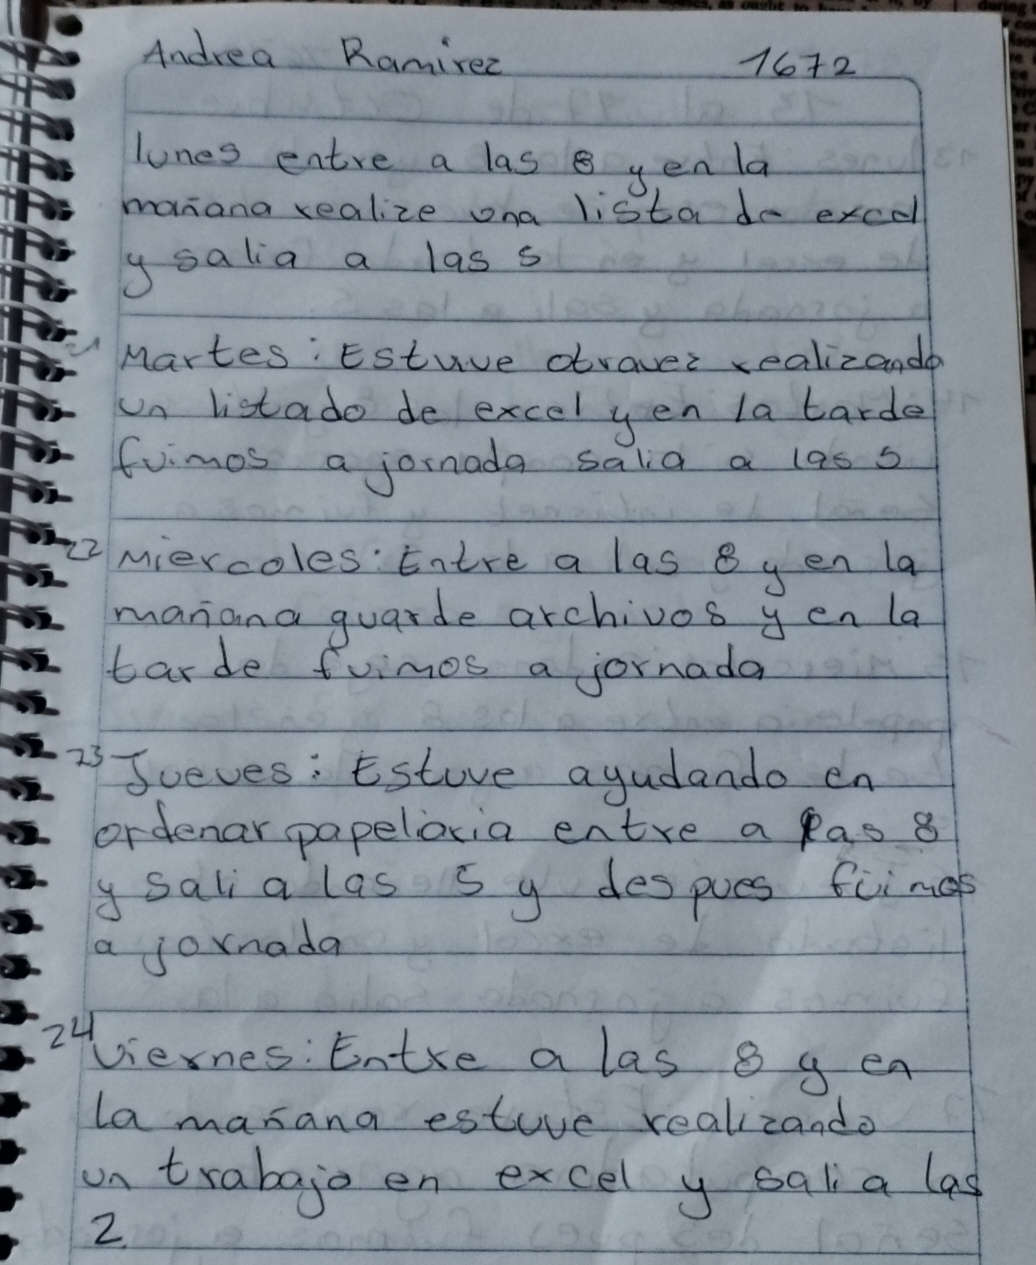 Andrea Ramirez 1672
lunes entre a las 8 y en la
mañana realize una lista de excel
y salia a las 5
21 Martes: Estuve otravez realizando
un listado de excel y en la tarde
fuimos a jornada salia a las 5
22 Miercoles: Entre a las 8 y en la
mañana guarde archivos y en la
tarde fuimos a jornada
23 Jueves: Estuve ayudando en
ordenar papelaria entre a las 8
y sali a las 5 y des pues fuimos
a jornada
24 Viernes: Entre a las 8 y en
la mañana estuve realizando
un trabajo en excel y sali a las
2.